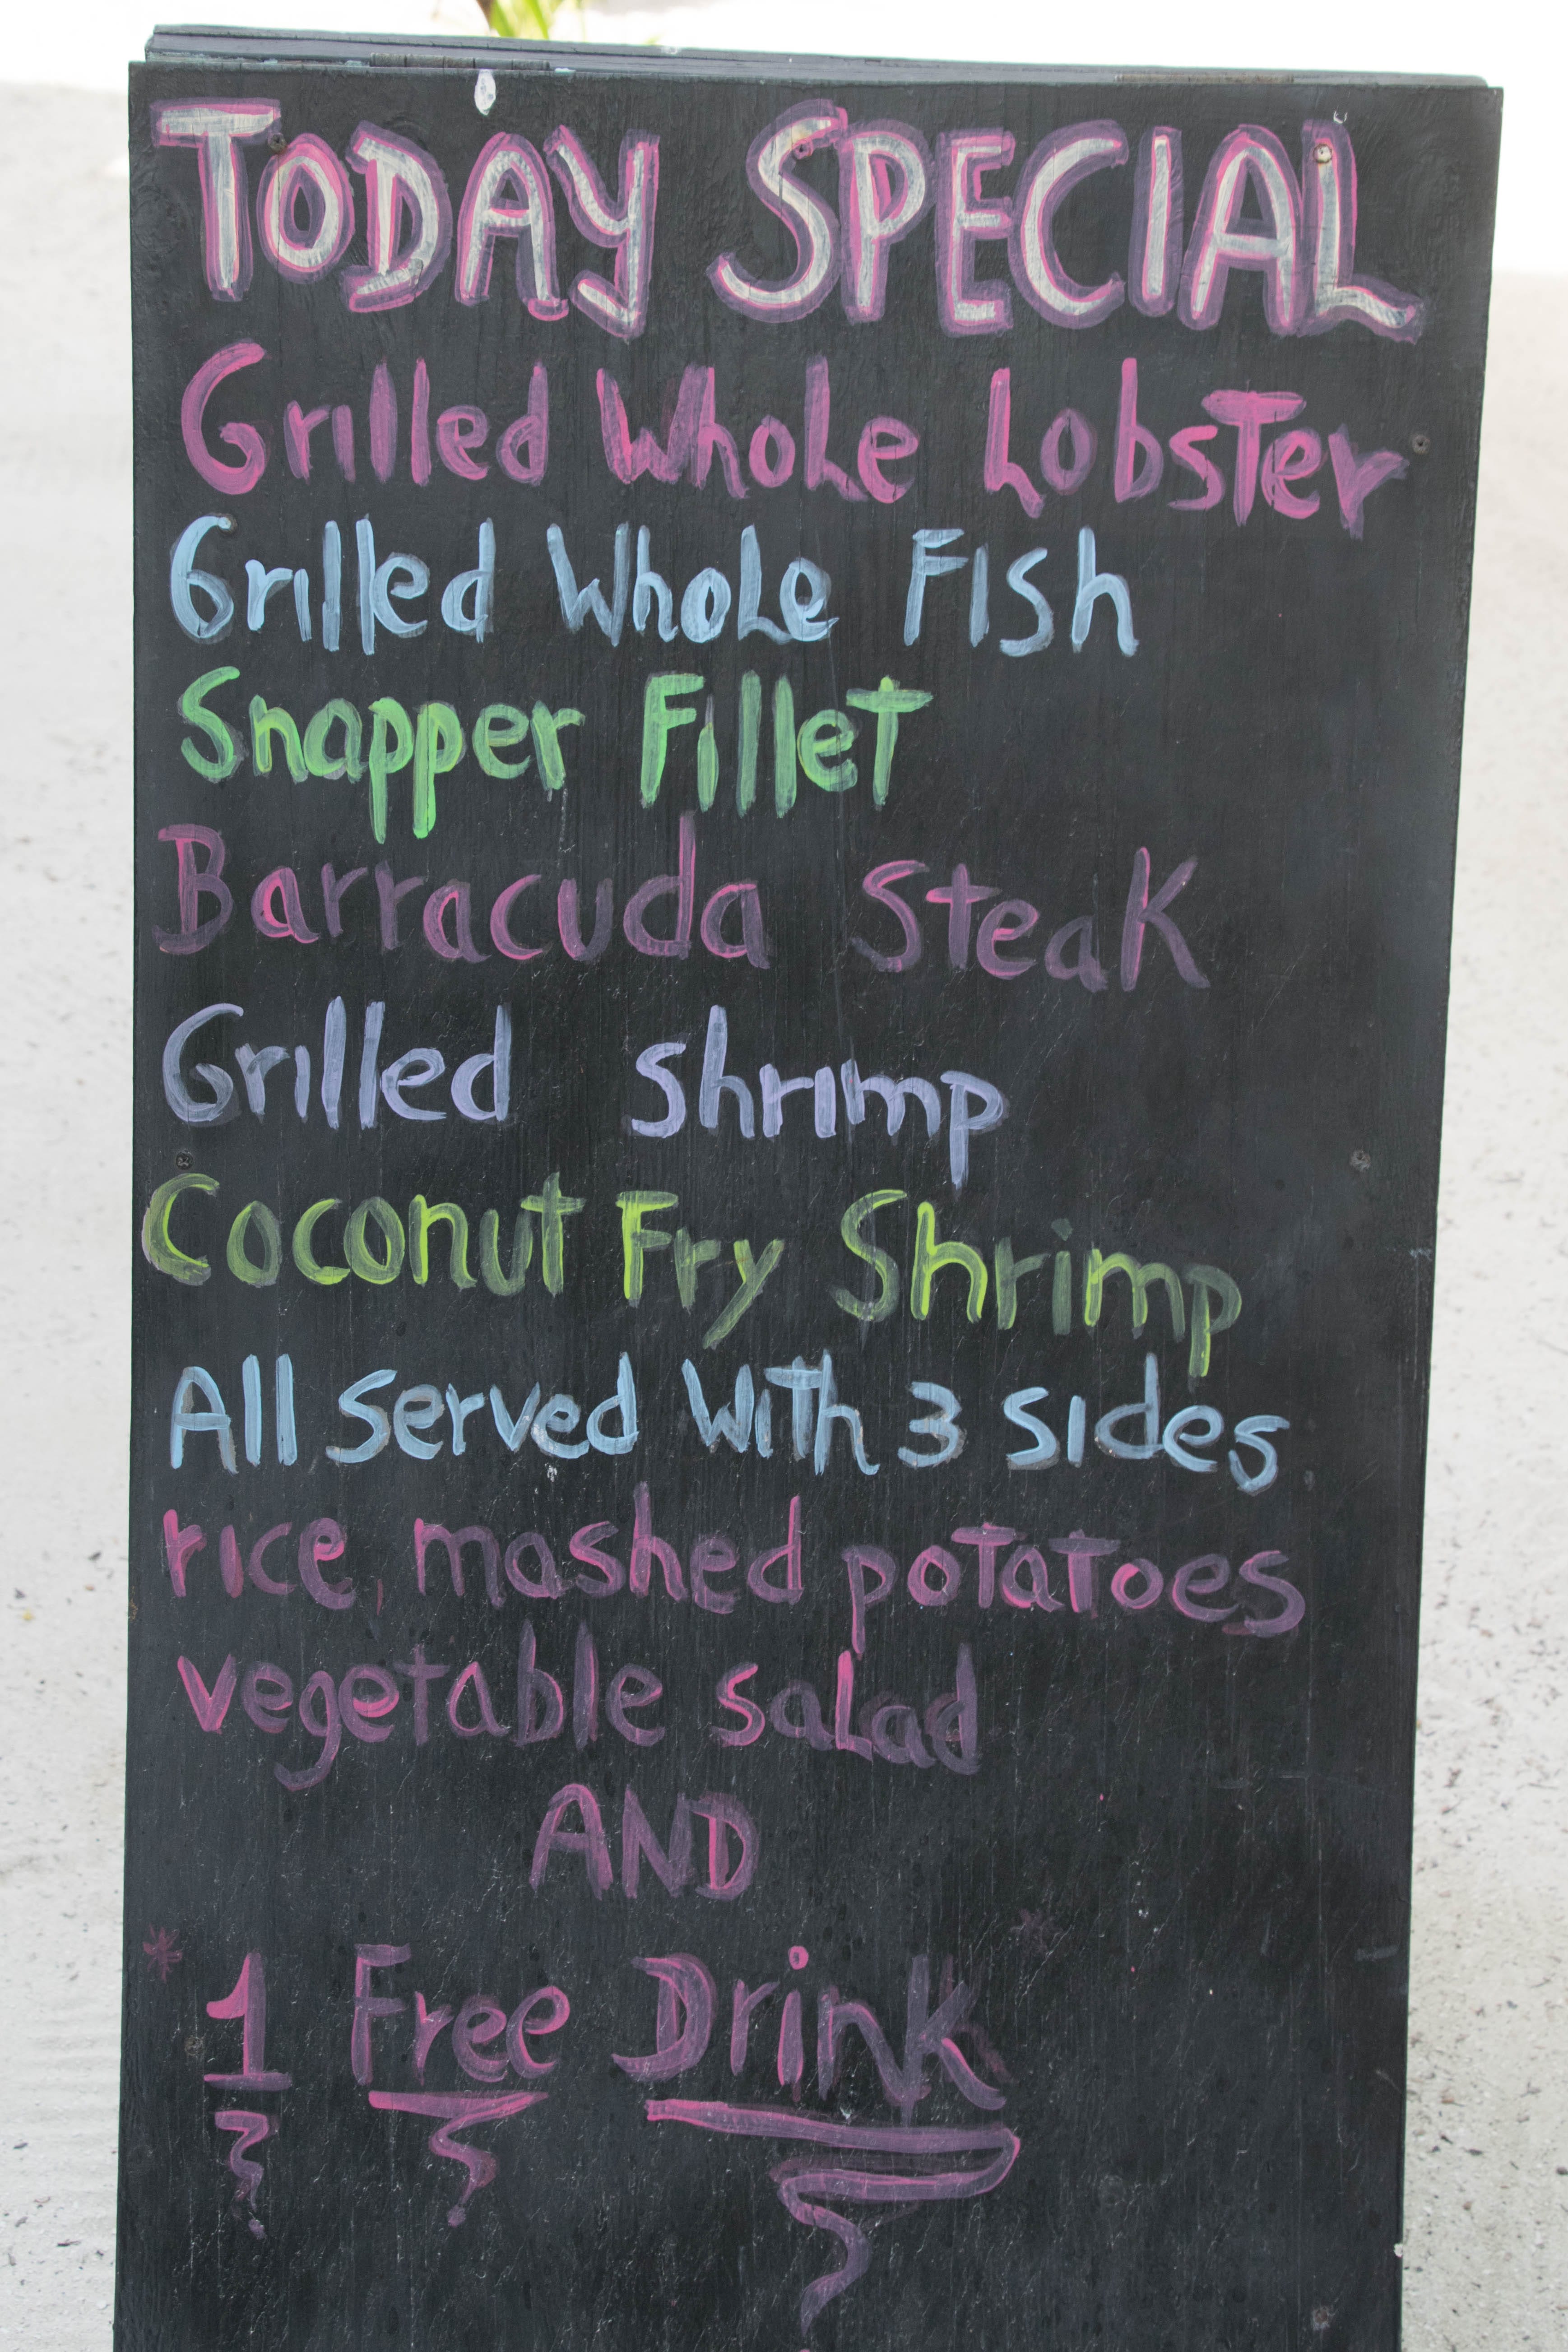 TODAY SPECIAL
Grilled Whole Lobster
Grilled Whole Fish
Snapper Fillet
Barracuda Steak
Grilled shrimp
Coconut Fry Shrimp
All served With 3 sides
rice, mashed potatoes
vegetable salad
AND
* 1 Free Drink *